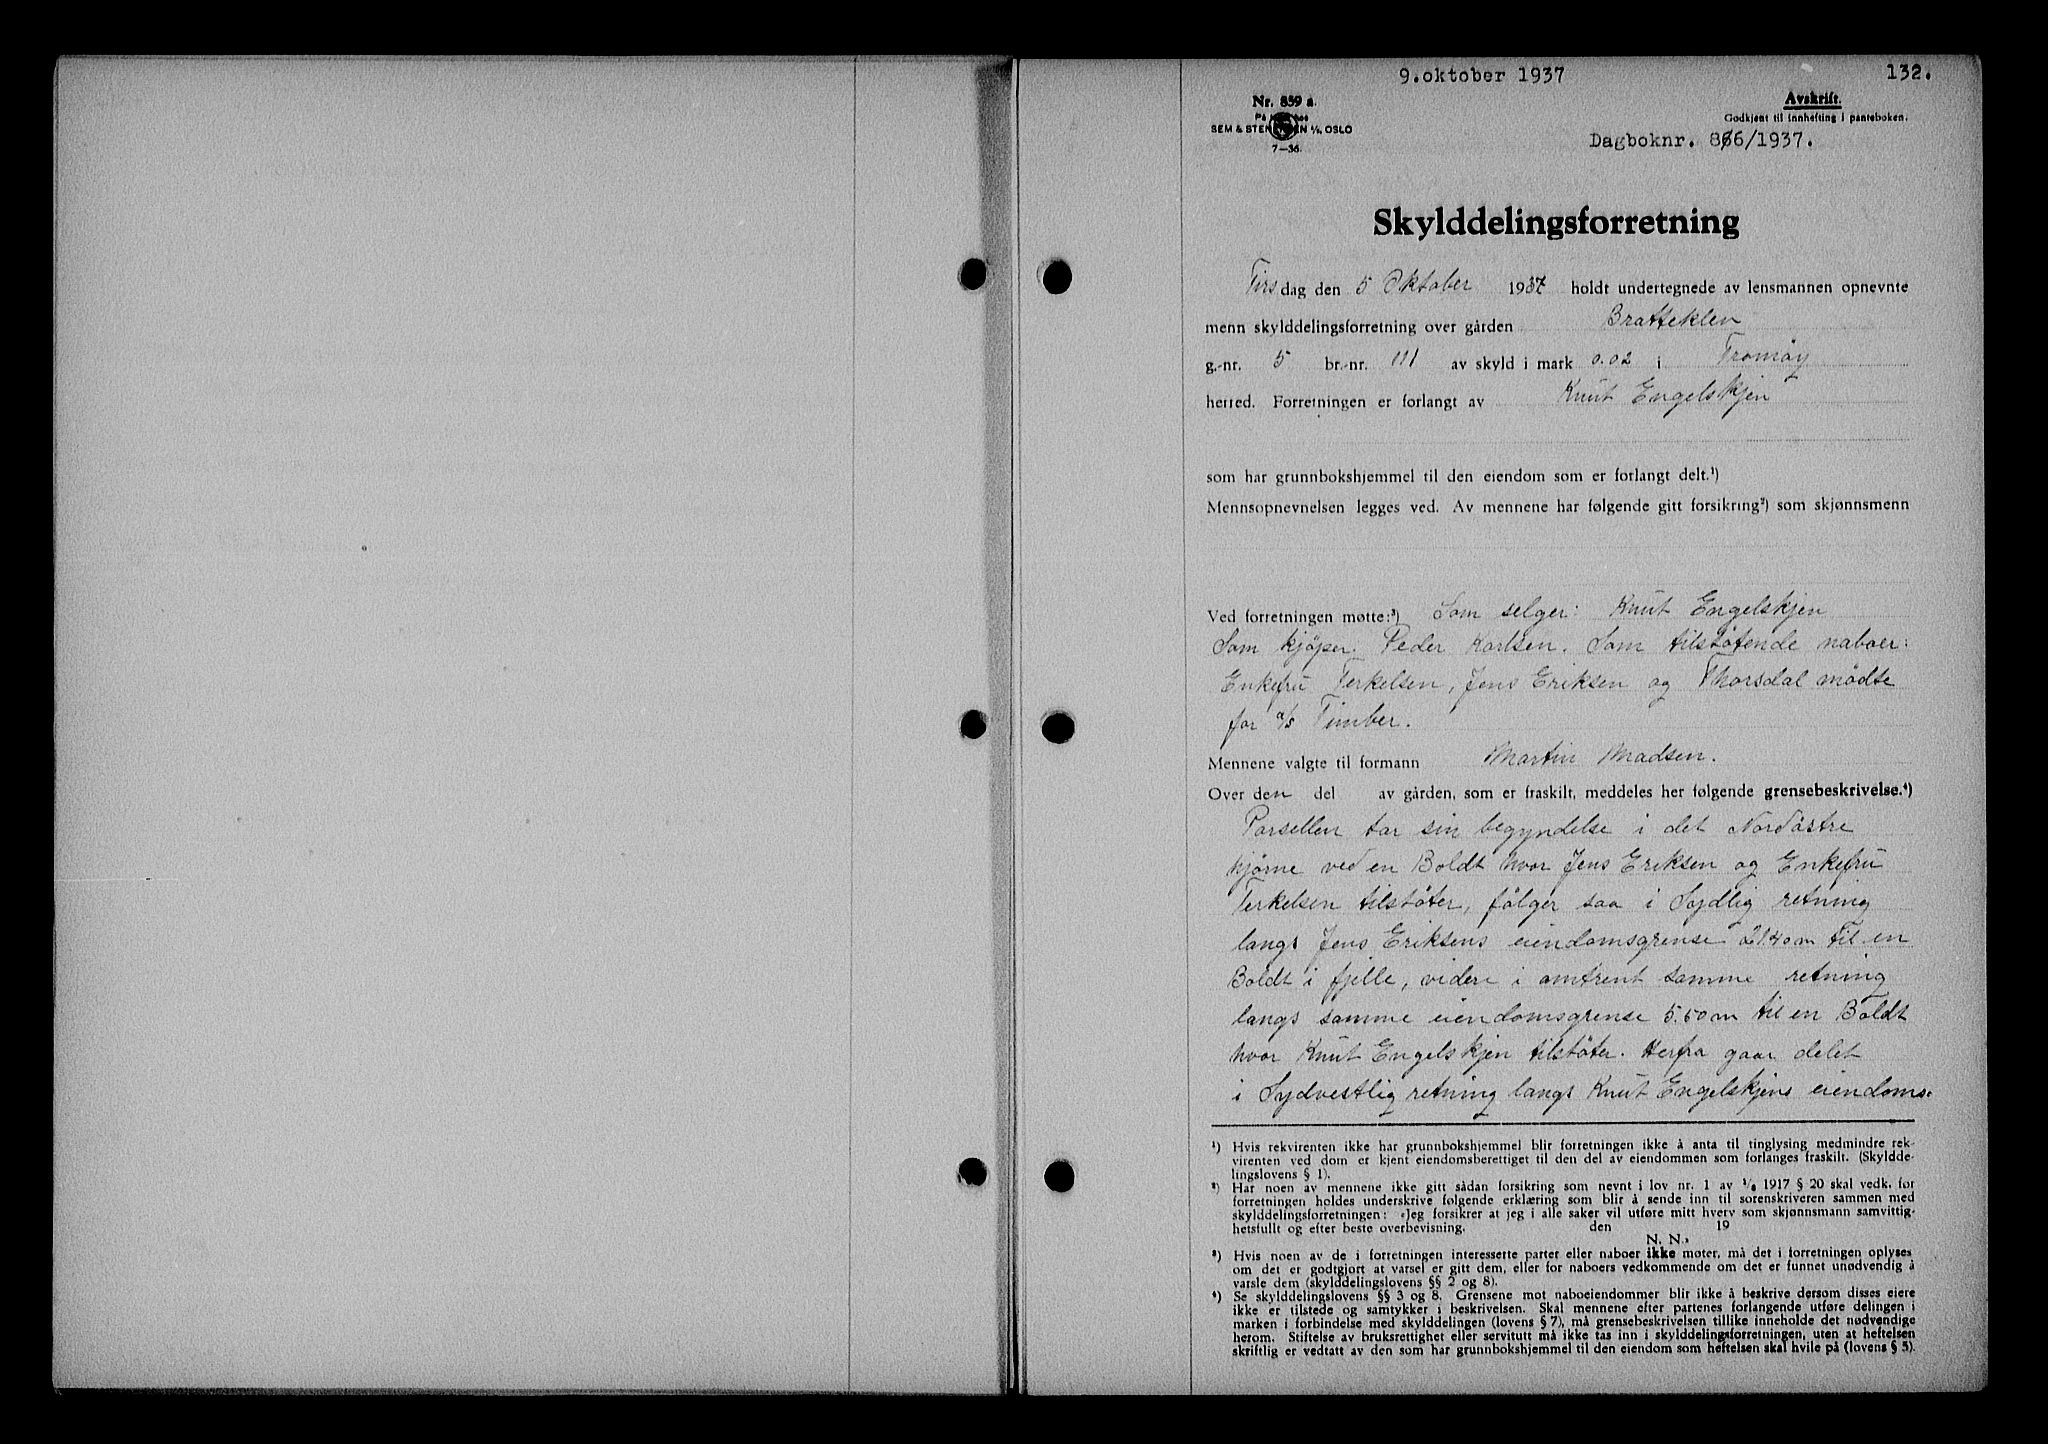 9.oktober 1937 132.
Nr. 859 a.
Avskrift.
Godkjent til innhefting i panteboken.
SEM & STENERSEN A/S. OSLO
7-36.
Dagboknr. 866/1937.
Skylddelingsforretning
Tirsdag den 5 Oktober 1937 holdt undertegnede av lensmannen opnevnte
menn skylddelingsforretning over gården Bratteklev
g.-nr. 5 br.-nr. 111 av skyld i mark 0.02 i Tromøy
herred. Forretningen er forlangt av Knut Engelskjen
som har grunnbokshjemmel til den eiendom som er forlangt delt.¹)
Mennsopnevnelsen legges ved. Av mennene har følgende gitt forsikring²) som skjønnsmenn
Ved forretningen møtte:³) Som selger: Knut Engelskjen
Som kjøper. Peder Karlsen. Som tilstøtende naboer:
Enkefru Terkelsen, Jens Eriksen og Thorsdal mødte
for a/s Timber.
Mennene valgte til formann Martin Madsen.
Over den del av gården, som er fraskilt, meddeles her følgende grensebeskrivelse.⁴)
Parsellen tar sin begyndelse i det Nordøstre
hjørne ved en Boldt hvor Jens Eriksen og Enkefru
Terkelsen tilstøter, følger saa i Sydlig retning
langs Jens Eriksens eiendomsgrense 21.40 m til en
Boldt i fjelle, videre i omtrent samme retning
langs samme eiendomsgrense 5.50 m til en Boldt
hvor Knut Engelskjen tilstøter. Herfra gaar delet
i Sydvestlig retning langs Knut Engelskjens eiendoms-
¹) Hvis rekvirenten ikke har grunnbokshjemmel blir forretningen ikke å anta til tinglysing medmindre rek-
virenten ved dom er kjent eiendomsberettiget til den del av eiendommen som forlanges fraskilt. (Skyldde-
lingslovens § 1).
²) Har noen av mennene ikke gitt sådan forsikring som nevnt i lov nr. 1 av 1/6 1917 § 20 skal vedk. før
forretningen holdes underskrive følgende erklæring som blir å sende inn til sorenskriveren sammen med
skylddelingsforretningen: «Jeg forsikrer at jeg i alle saker vil utføre mitt hverv som skjønnsmann samvittig-
hetsfullt og efter beste overbevisning. den 19
N. N.»
³) Hvis noen av de i forretningen interesserte parter eller naboer ikke møter, må det i forretningen oplyses
om det er godtgjort at varsel er gitt dem, eller for naboers vedkommende om det er funnet unødvendig å
varsle dem (skylddelingslovens §§ 2 og 8).
⁴) Se skylddelingslovens §§ 3 og 8. Grensene mot naboeiendommer blir ikke å beskrive dersom disses eiere
ikke er tilstede og samtykker i beskrivelsen. Skal mennene efter partenes forlangende utføre delingen i
marken i forbindelse med skylddelingen (lovens § 7), må grensebeskrivelsen tillike inneholde det nødvendige
herom. Stiftelse av bruksrettighet eller servitutt må ikke tas inn i skylddelingsforretningen, uten at heftelsen
skriftlig er vedtatt av den som har grunnbokshjemmel til den eiendom som heftelsen skal hvile på (lovens § 5).